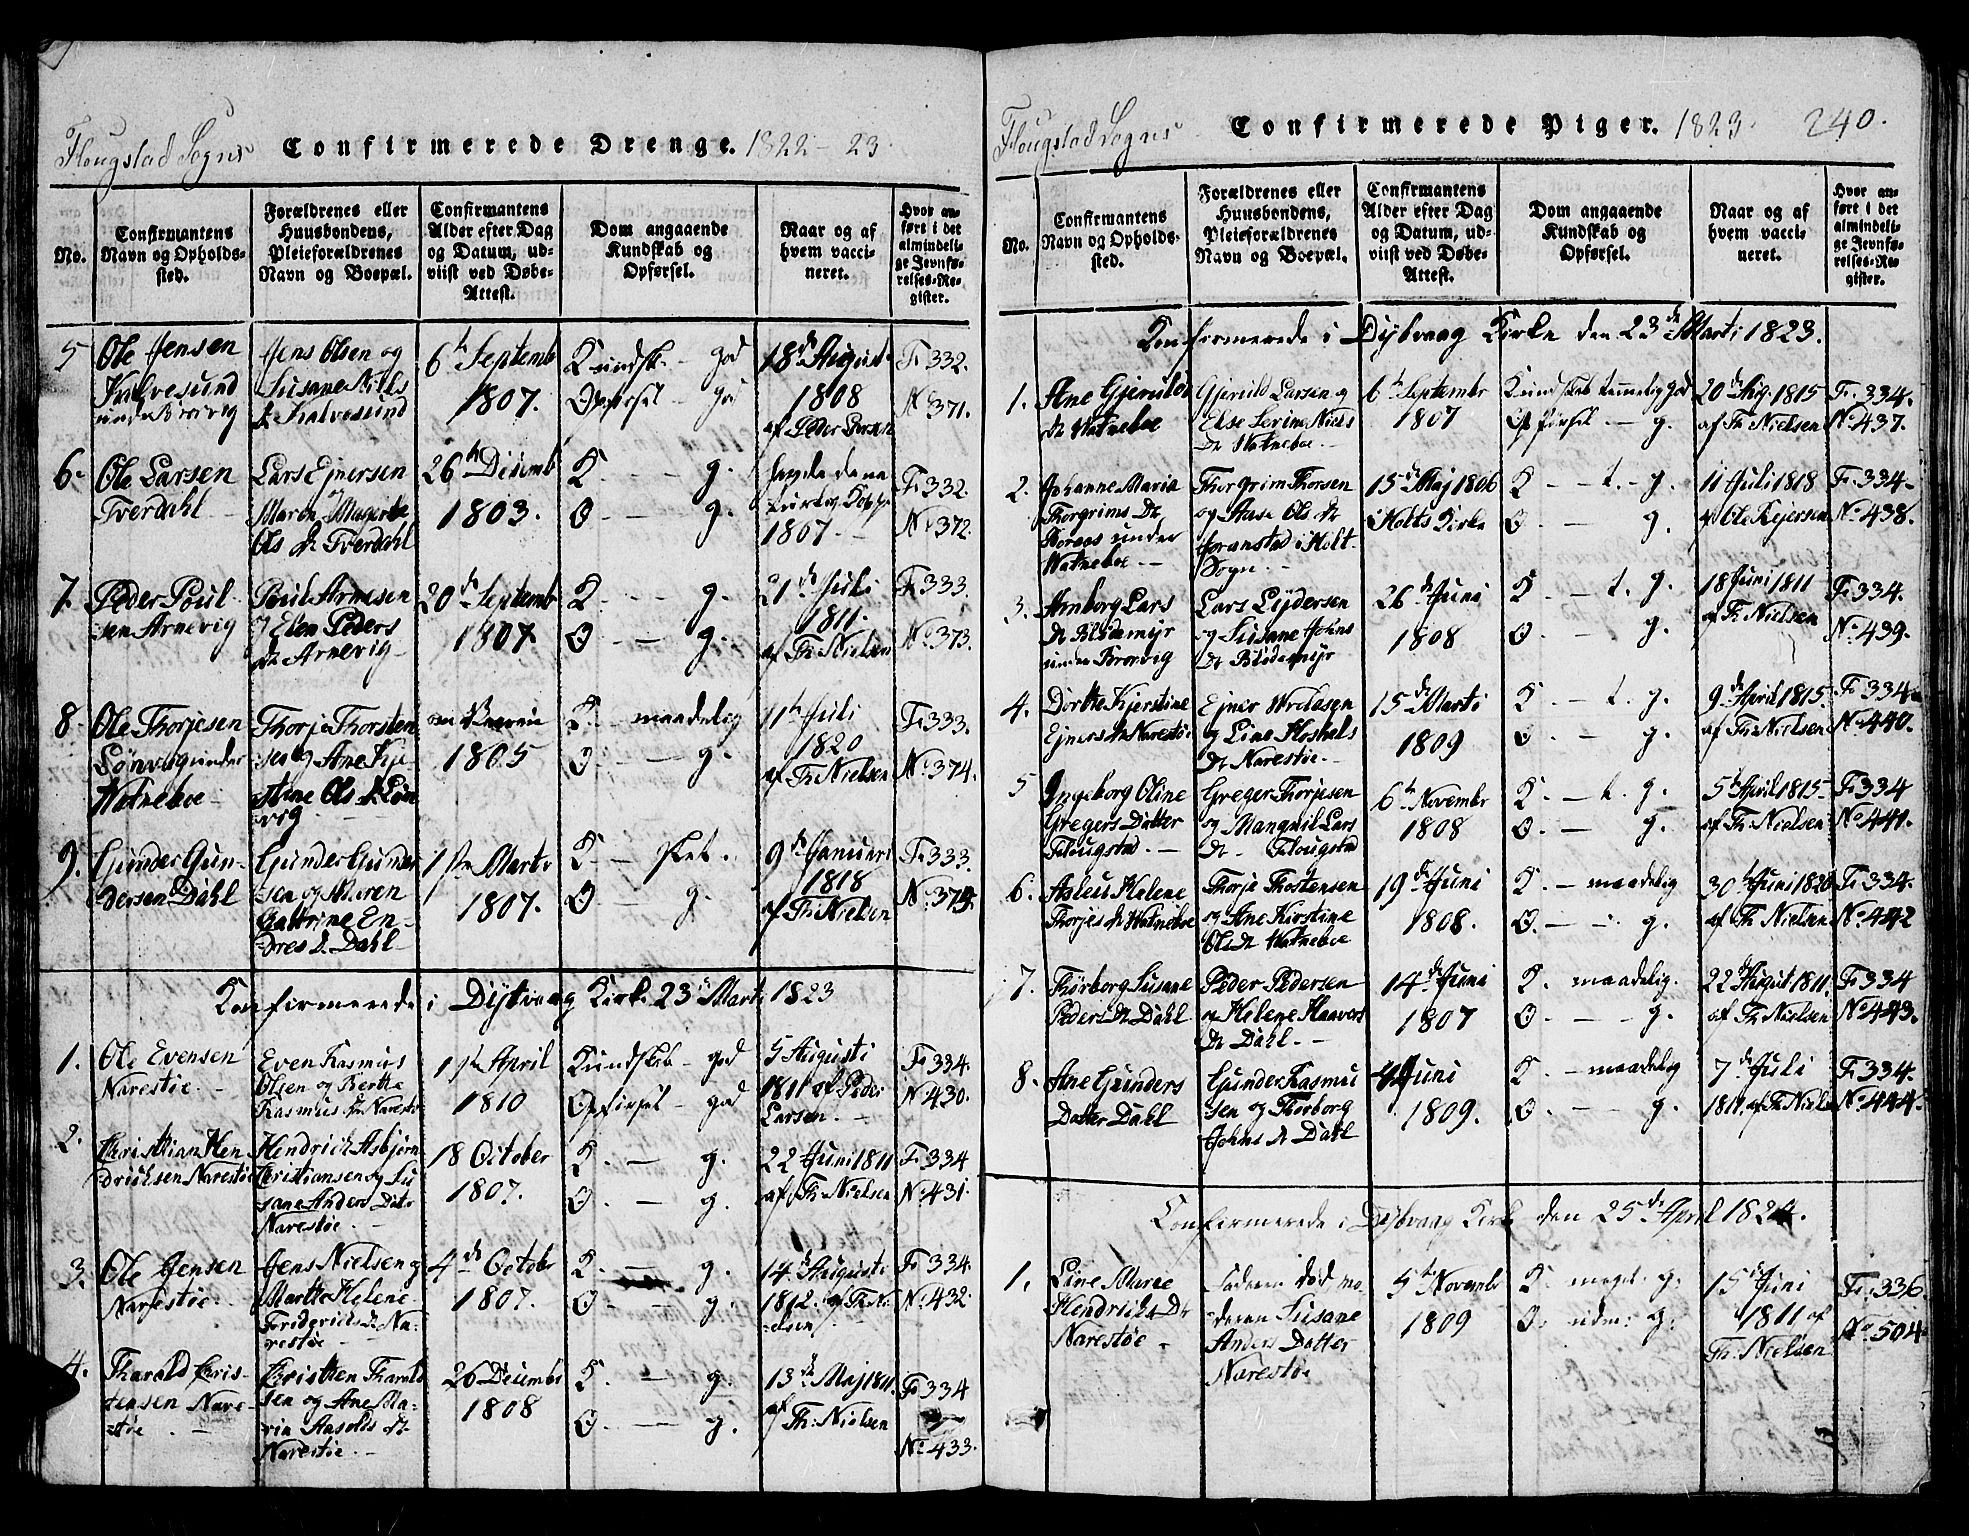 Flougstad Sogns Confirmerede Drenge. 1822 - 23.
No.
Confirmantens
Navn og Opholds-
sted.
Forældrenes eller
Huusbondens,
Pleieforældrenes
Navn og Boepæl.
Confirmantens
Alder efter Dag
og Datum, ud-
viist ved Døbe-
Attest.
Dom angaaende
Kundskab og
Opførsel.
Naar og af
hvem vacci-
neret.
Hvor an-
ført i det
almindeli-
ge Jevnfø-
relses-Re-
gister.
5
Ole Jensen
Kalvesund
Jens Olsen og
Susane Niels
Dr Kalvesund
6te Septembr
1807.
Kundsk. - god
Opførsel - god
18de August
1808
af Peder
F. 332.
No 371.
6.
Ole Larsen
Tverdahl
Lars Ejnersen
og
Maren Magrethe
Ols Dr Tverdahl
26te Decemb
1803.
K. - - g.
O - - g.
1807.
F. 332.
No 372.
7.
Peder Poul-
sen Arnevig
Poul Arnesen
og Elen Peders
Dr Arnevig
20de Septemb
1807.
K. - - g.
O - - g.
21de Juli
1811.
af Th Nielsen
F. 333.
No 373.
8.
Ole Thorjesen
Lønvig under
Watneboe
Thorje Thorsten-
sen og Ane Kje-
stine Ols Dr Løn-
vig
1805
K. - maadelig
O - - g.
11te Juli
1820
af Th Nielsen
F. 333.
No 374.
9.
Gunder Gun-
dersen Dahl
Gunder Gunder
sen og Maren
Cathrine En-
dres D. Dahl
1ste Marts
1807.
K. - slet.
O - g.
9de Januari
1818
af Th Nielsen
F. 333.
No 375.
Konfirmerede i Dybvaag Kirke 23de Marti 1823
1.
Ole Evensen
Narestøe.
Even Rasmus
Olsen og Berthe
Rasmus Dr Narestø
1ste April
1810
Kundskab - god
Opførsel - god
5 Augusti
1811 af Peder
Larsen.
F. 334.
No 430.
2.
Christian Hen
driksen Narestø
Hendrich Asbjørn
Christiansen og Su
sane Anders Datr
Narestøe.
18 October
1807.
K. - g.
O. - g.
22 Juni 1811
af Th Nielsen
F. 334
No 431.
3.
Ole Jensen
Narestøe.
Jens Nielsen og
Marthe Helene
Friderichs Dr Na-
restøe
4de Octobr
1807.
K. - g.
O. - g.
14de Augusti
1812. af Th Ni
elsen
F. 334.
No 432.
4.
Tharald Chris-
tensen Nare-
støe
Christen Tharald
sen og Ane Ma-
ria Aasolds Dr
Narestøe.
26 Decembr
1808
K. - g.
O. - g.
13de Maj 1811.
af Th: Nielsen
F. 334
No 433.
Flougstad Sogns Confirmerede Piger. 1823. 240.
No.
Confirmantens
Navn og Opholds-
sted.
Forældrenes eller
Huusbondens,
Pleieforældrenes
Navn og Boepæl.
Confirmantens
Alder efter Dag
og Datum, ud-
viist ved Døbe-
Attest.
Dom angaaende
Kundskab og
Opførsel.
Naar og af
hvem vacci-
neret.
Hvor an-
ført i det
almindeli-
ge Jevnfø-
relses-Re-
gister.
Konfirmerede i Dybvaag Kirke den 23de Marti 1823.
1.
Ane Gjerulds
Dr Watneboe
Gjeruld Larsen og
Else Serine Niels
Dr Watneboe.
6te Septembr
1807
Kundskab temmelig god
Opførsel - g.
20de Aug. 1815
af Th Nielsen
F. 334.
No 437.
2.
Johanne Maria
Thorgrims Dr
under
Watneboe
Thorgrim Thorsen
og Aase Ols Dr
i Holt
Sogn.
15de Maj 1806
i Holts Kirke
K - t. - g.
O - g.
11 Juli 1818
af Ole Rejersen
F. 334.
No 438.
3.
Arnborg Lars
Dr Blødemyr
Lars Lydersen
og Susane Johns
Dr Blødemyr
26de Juni
1808
K - t. g.
O - g.
18 Juni 1811
af Th Nielsen
F. 334.
No 439.
4.
Dorthe Kjerstine
Ejners Dr Narestø
Ejner
og Line
Dr Narestøe.
15de Marti
1809
K - t. g.
O - g.
9de April 1815.
af Th Nielsen
F. 334
No 440.
5
Ingeborg Oline
Gregers Datter
Flougstad.
Greger Thorjesen
og Lars
Dr Flougstad
6te Novembr
1808
K. - t. g.
O. - g.
5te April 1815
af Th Nielsen
F. 334
No 441.
6.
Helene
Thorjes Dr Watneboe
Thorje Thostensen
og Ane Kirstine
Ols Dr Watneboe
19de Juni
1808.
K. - maadelig
O. - g.
30te Juni 1820
af Th Nielsen
F. 334.
No 442
7.
Thorborg Susane
Peders Dr Dahl
Peder Pedersen
og Helene Haavors
Dr Dahl.
14de Juni
1807
K. maadelig.
O. - g.
22de August 1811.
af Th Nielsen
F. 334
No 443.
8.
Ane Gunders
Datter Dahl
Gunder Rasmu
sen og Thorborg
Johns Dr Dahl
Juni
1809.
K. - maadelig
O. - g.
7de Juli
1811. af Th Niels
F. 334.
No 444.
Confirmerede i Dybvaag Kirke den 25de April 1824.
1.
Line Marie
Hendrichs Dr
Narestøe
Faderen død mo-
deren Susane
Anders Datter
Narestøe
5te Novembr
1809
K. meget g.
O. g.
15de Juni
1811 af
Th. Nielsen
F. 336.
No 504.